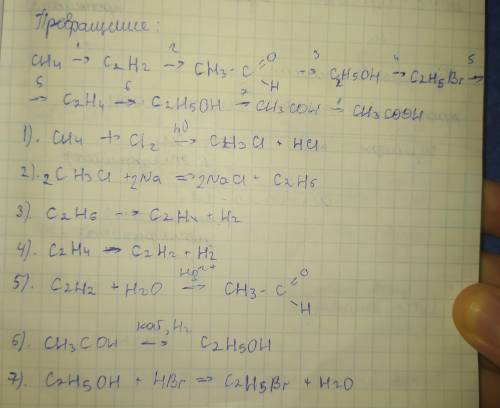 Превращение:
CH4 1→ C2H2 2→ CH3-C=O H 3→ C2H5OH 4→ C2H5Br 5→
5→ C2H4 6→ C2H5OH 7→ CH3COH → CH3COOH
1). CH4 + Cl2 hυ→ CH3Cl + HCl
2). 2CH3Cl + 2Na => 2NaCl + C2H6
3). C2H6 → C2H4 + H2
4). C2H4 → C2H2 + H2
5). C2H2 + H2O Hg2+→ CH3-C=O H
6). CH3COH кат, H2→ C2H5OH
7). C2H5OH + HBr => C2H5Br + H2O